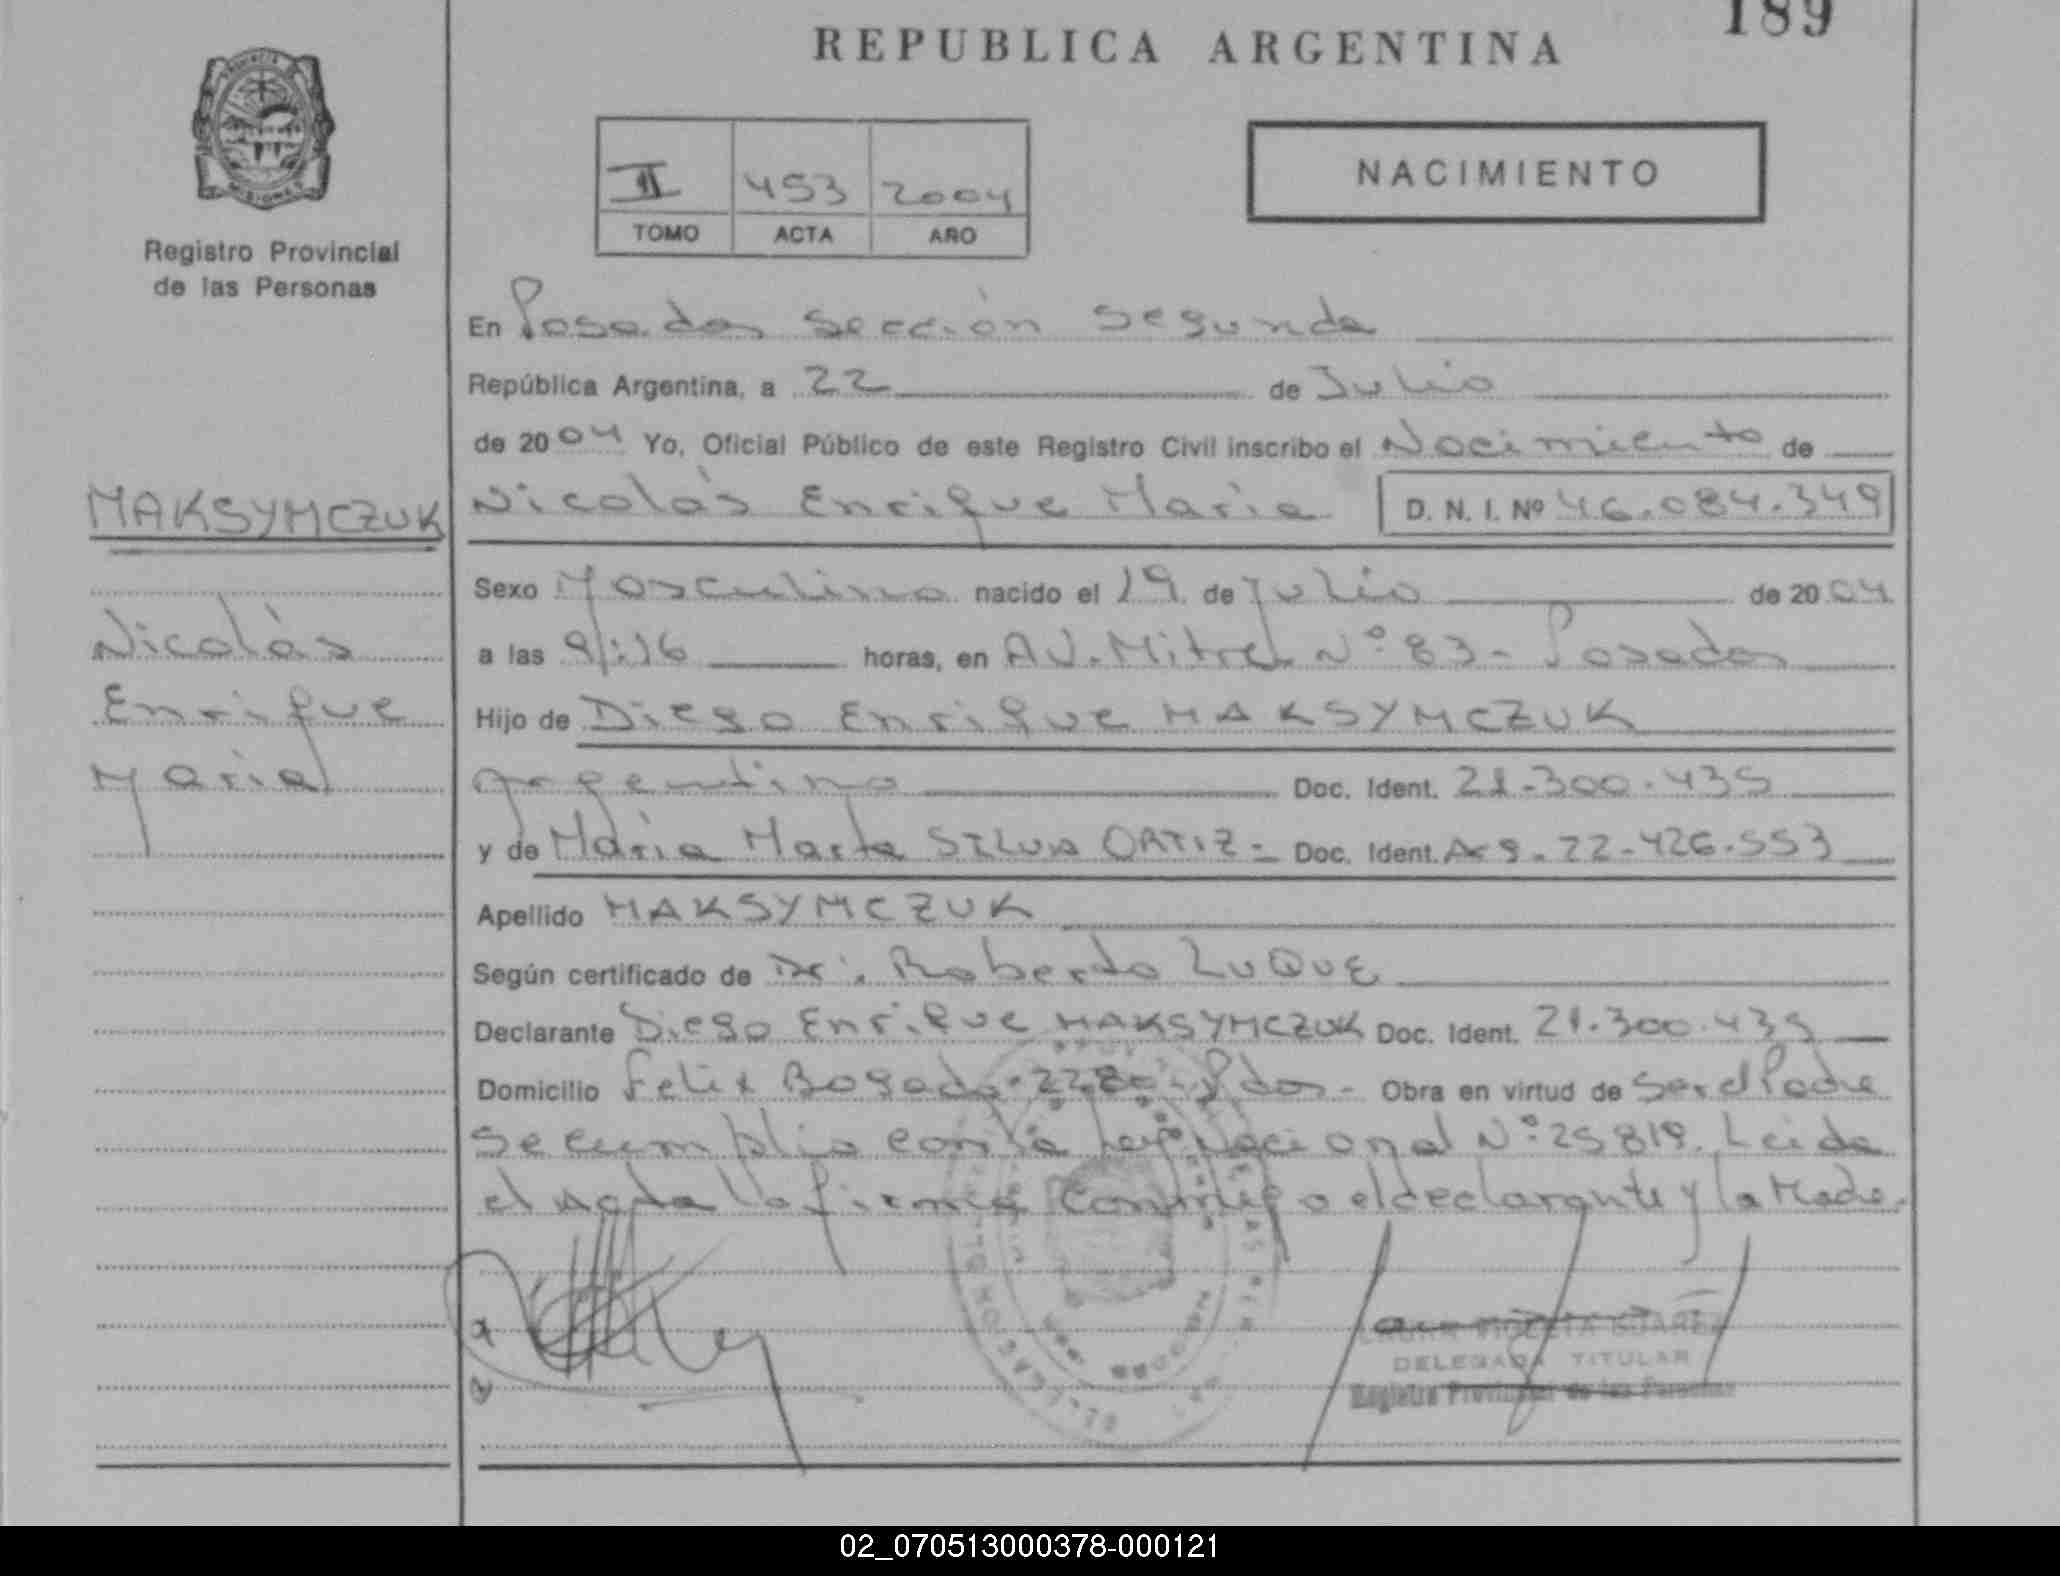 189
REPUBLICA ARGENTINA
PROVINCIA DE
MISIONES
Registro Provincial
de las Personas
II 453 2004
TOMO ACTA AÑO
NACIMIENTO
En Posadas sección segunda
República Argentina, a 22 de Julio
de 2004 Yo, Oficial Público de este Registro Civil inscribo el Nacimiento de
MAKSYMCZUK
Nicolás Enrique Maria D. N. I. Nº 46.084.349
Sexo Masculino nacido el 19 de Julio de 2004
Nicolás
a las 9:16 horas, en AV. Mitre Nº 83 - Posadas
Enrique
Hijo de Diego Enrique MAKSYMCZUK
Maria
Argentino Doc. Ident. 21.300.435
y de Maria Marta SILVA ORTIZ - Doc. Ident. Arg. 22.426.553
Apellido MAKSYMCZUK
Según certificado de Dr. Roberto LUQUE
Declarante Diego Enrique MAKSYMCZUK Doc. Ident. 21.300.435
Domicilio Felix Bogado Pdas - Obra en virtud de ser el Padre
se cumplio con la Ley Nacional Nº 25819. Leida
el Acta la firma conmigo el declarante y la Madre.
DELEGADA TITULAR
Registro Provincial de las Personas
02_070513000378-000121